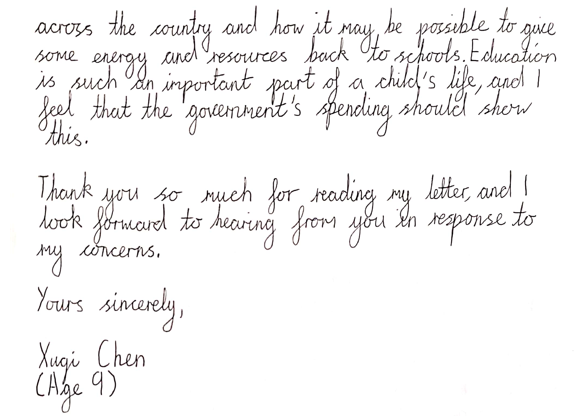 across the country and how it may be possible to give
some energy and resources back to schools. Education
is such an important part of a child's life, and I
feel that the government's spending should show
this.
Thank you so much for reading my letter, and I
look forward to hearing from you in response to
my concerns.
Yours sincerely,
Xuqi Chen
(Age 9)